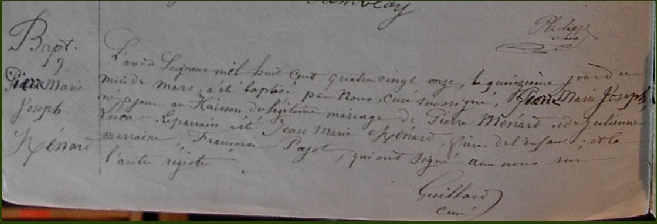 Bapt.
9
Pierre Marie
Joseph
Ménard
L'an du Seigneur mil huit cent quatre vingt onze, le quinzième jour du
mois de Mars, a été baptisé par Nous, curé soussigné, Pierre Marie Joseph,
né ce jour au du légitime mariage de Pierre Ménard et de Julienne
Luca. Le parrain a été Jean Marie Ménard, frère de l'enfant, et la
marraine Françoise Pajot, qui ont signé avec nous sur
l'autre registre
Guillard
curé